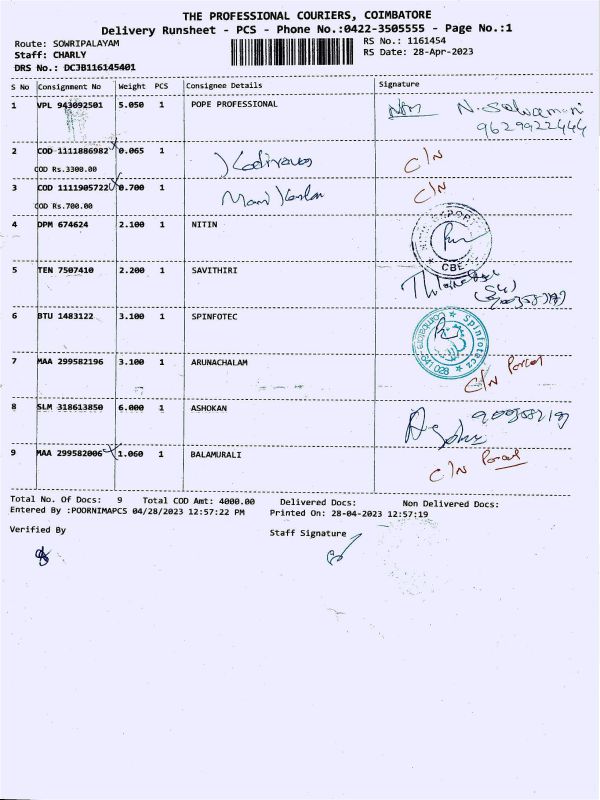 THE PROFESSIONAL COURIERS, COIMBATORE
Delivery Runsheet - PCS - Phone No.:0422-3505555 - Page No.:1
Route: SOWRIPALAYAM
RS No.: 1161454
Staff: CHARLY
RS Date: 28-Apr-2023
DRS No.: DCJB116145401
S No Consignment No Weight PCS Consignee Details Signature
1 VPL 943092501 5.050 1 POPE PROFESSIONAL
9629922444
2 COD 1111886982 0.065 1 C/N
COD Rs.3300.00
3 COD 1111905722 0.700 1 C/N
COD Rs.700.00
4 DPM 674624 2.100 1 NITIN
CBE
5 TEN 7507410 2.200 1 SAVITHIRI
6 BTU 1483122 3.100 1 SPINFOTEC
Spinfotecz Coimbatore 641 028
7 MAA 299582196 3.100 1 ARUNACHALAM
C/N Parcel
8 SLM 318613850 6.000 1 ASHOKAN
9 MAA 299582006 1.060 1 BALAMURALI
C/N Parcel
Total No. Of Docs: 9 Total COD Amt: 4000.00 Delivered Docs: Non Delivered Docs:
Entered By :POORNIMAPCS 04/28/2023 12:57:22 PM Printed On: 28-04-2023 12:57:19
Verified By
Staff Signature